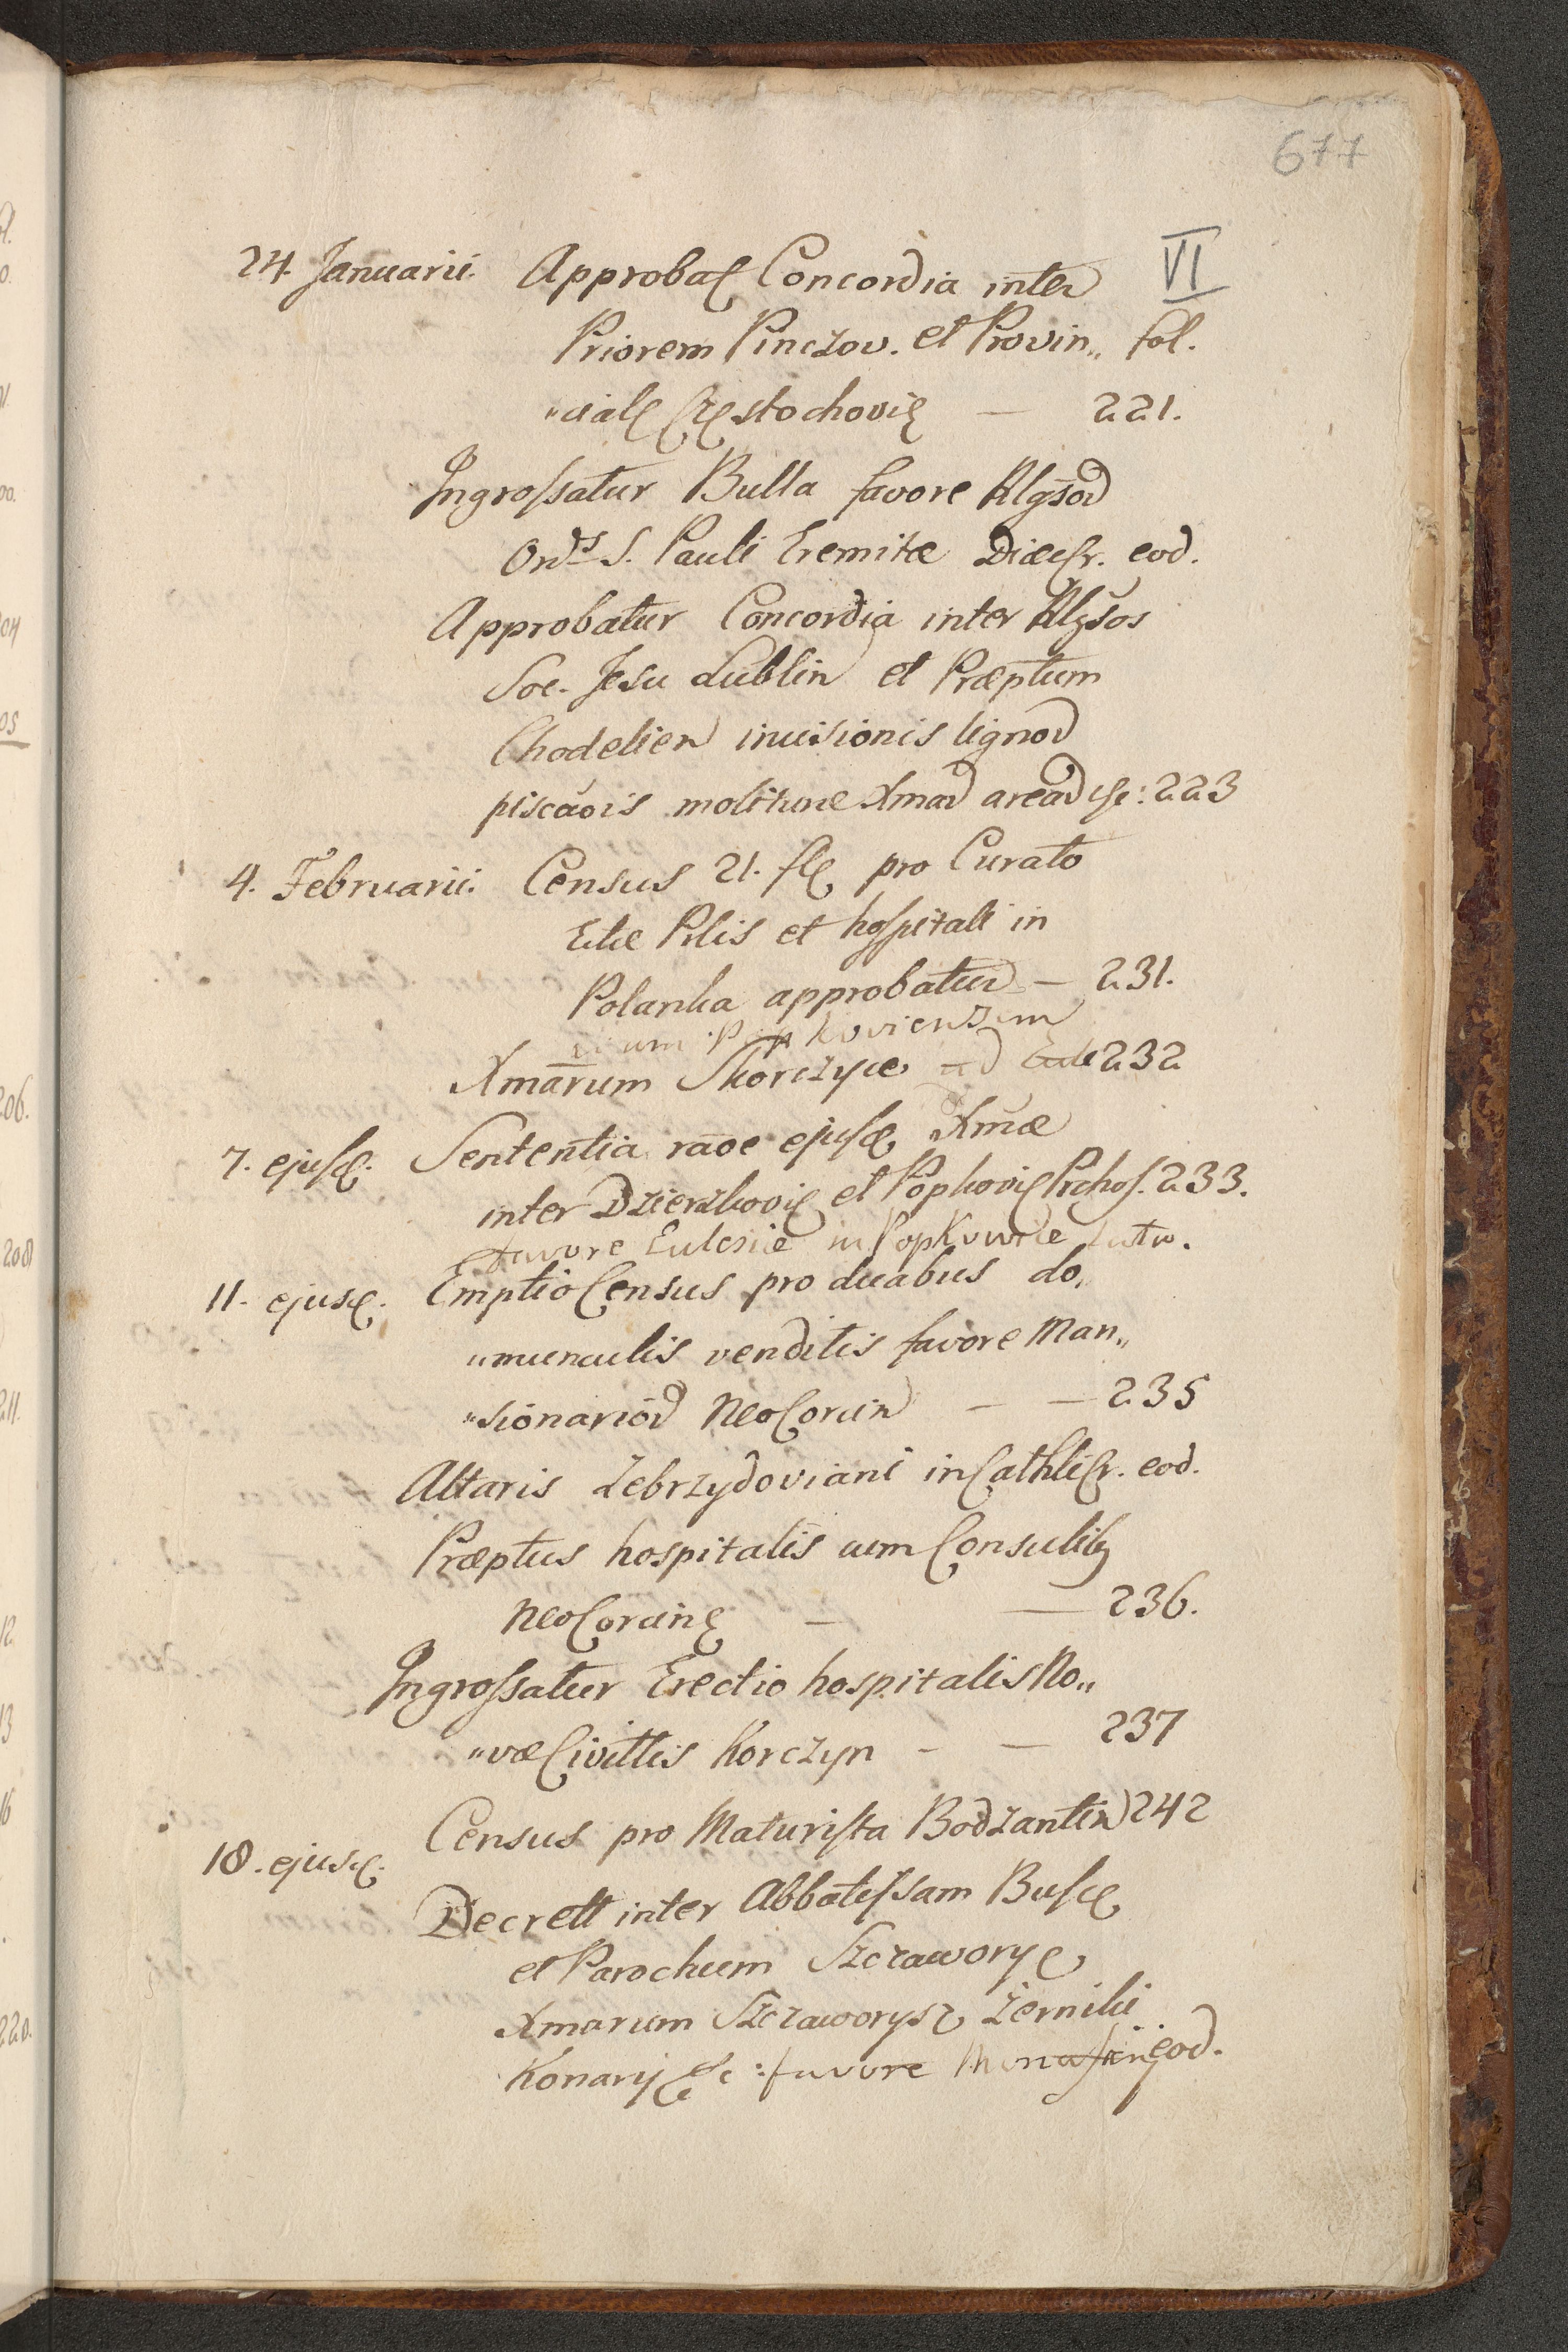 677
VI
24. Januarii. Approbat Concordia inter
Priorem Pinczov. et Provin„ fol.
„cial Częstochovię — 221.
Ingrossatur Bulla favore Rlgsor
Ordis S. Pauli Eremitæ Diæc. Cr. eod.
Approbatur Concordia inter Rlgšos
Soc. Jesu Lublin et Præptum
Chodelien incisionis lignor
piscãois molituræ Xmar arear &c: 223
4. Februarii. Census 21. fl pro Curato
Ecliæ Prlis et hospitali in
Polanka approbatur — 231.
Popkoviensem
Xmarum Skorczyce ad 232
7. ejusd. Sententia raõe ejusd Xmæ
inter Dzierzkovię et Popkovię Prchos. 233.
favore Eclesiæ in Popkowice
11. ejusd. Emptio Census pro duabus do„
„munculis venditis favore Man„
„sionarior NeoCorcin — — 235
Altaris Zebrzydoviani in Cathli Cr. eod.
Præptus hospitalis cum Consulib9
NeoCorcinę — — 236.
Ingrossatur Erectio hospitalis No„
„væ Civittis Korczyn — — 237
Census pro Maturista Bodzantin 242
18. ejusd. Decrett inter Abbatissam Busc
et Parochum Szczawory
Xmarum Szczaworysz Zerniki
Konary &c: favore eod.